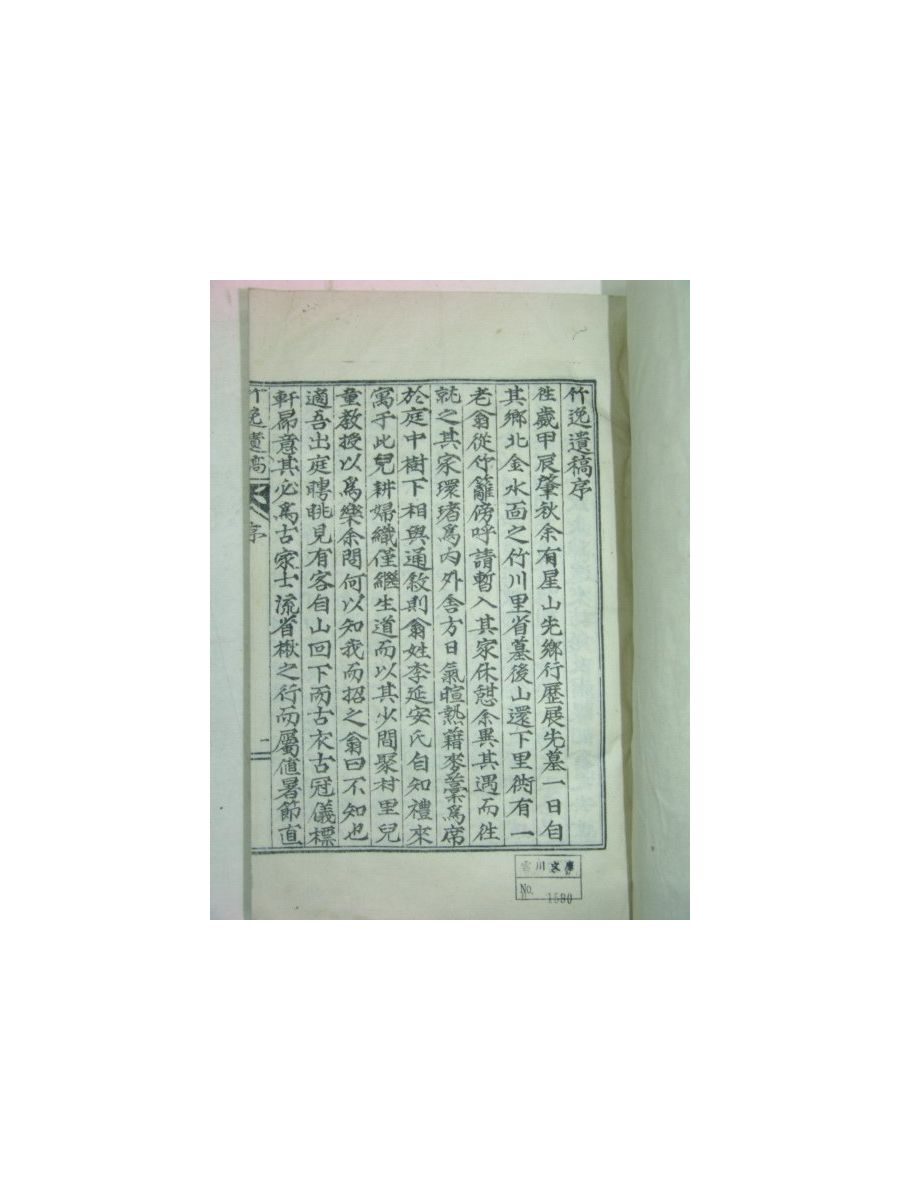 竹逸遺稿序
徃歲甲辰肇秋余有星山先鄉行歷展先墓一日自
其鄉北金水面之竹川里省墓後山還下里衖有一
老翁從竹籬傍呼請暫入其家休憇余異其遇而徃
就之其家環堵爲內外舍方日氣暄熱籍麥藁爲席
於庭中樹下相與通敘則翁姓李延安氏自知禮來
寓于此兒耕婦織僅繼生道而以其少間聚村里兒
童教授以爲樂余問何以知我而招之翁曰不知也
適吾出庭聘眺見有客自山回下而古衣古冠儀標
軒昻意其必爲古家士流省楸之行而屬値暑節直
竹逸遺稿 序 一
川文庫
No. 1590